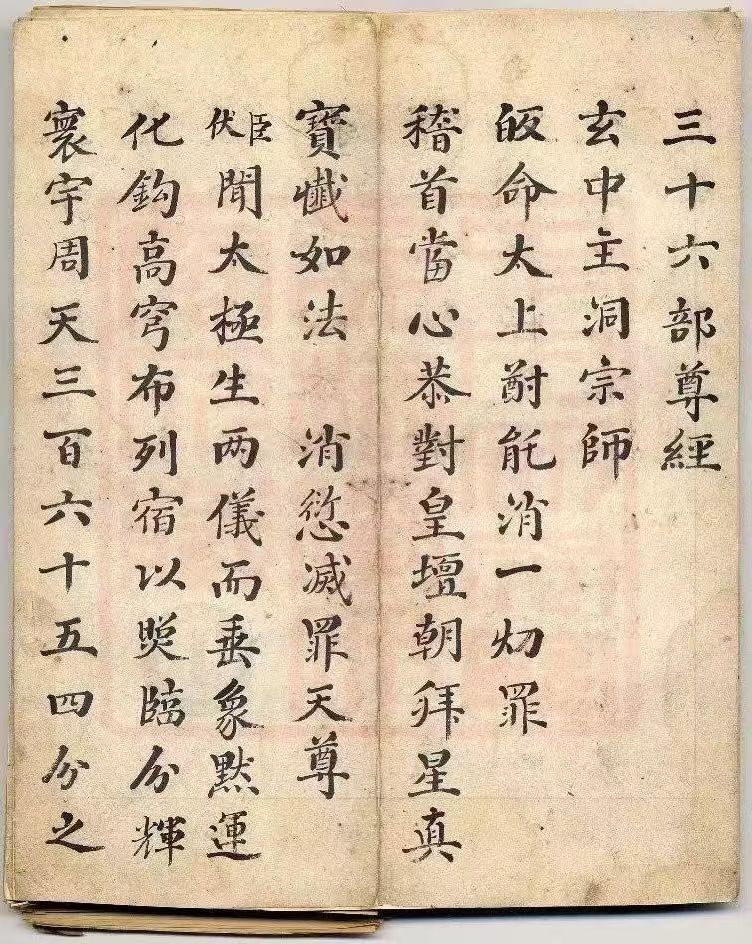 三十六部尊經
玄中主洞宗師
皈命太上尀能消一切罪
稽首當心恭對皇壇朝拜星真
寶懺如法　消愆滅罪天尊
臣伏聞太極生两儀而垂象黙運
化鈞高穹布列宿以照臨分輝
寰宇周天三百六十五四分之